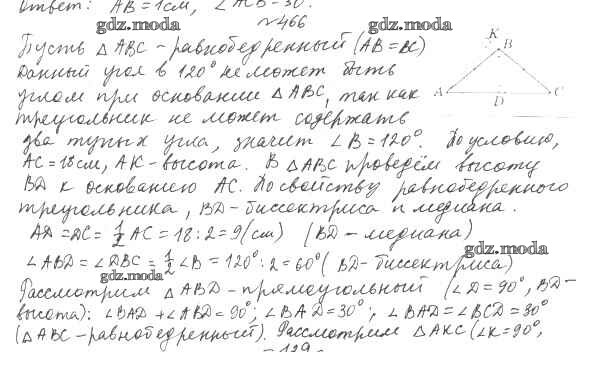 Ответ: AB = 1см, ∠ACB = 30°.
№466
gdz.moda gdz.moda
Пусть △ABC - равнобедренный (AB = BC)
Данный угол в 120° не может быть
углом при основании △ABC, так как
треугольник не может содержать
два тупых угла, значит ∠B = 120°. По условию,
AC = 18см, AK - высота. В △ABC проведём высоту
BD к основанию AC. По свойству равнобедренного
треугольника, BD - биссектриса и медиана.
AD = DC = 1/2 AC = 18:2 = 9 (см) (BD - медиана)
gdz.moda
∠ABD = ∠DBC = 1/2 ∠B = 120°:2 = 60° (BD - биссектриса)
gdz.moda
Рассмотрим △ABD - прямоугольный (∠D = 90°, BD -
высота): ∠BAD + ∠ABD = 90°; ∠BAD = 30°; ∠BAD = ∠BCD = 30°
(△ABC - равнобедренный). Рассмотрим △AKC (∠K = 90°,
- 129 -
K
B
A
D
C